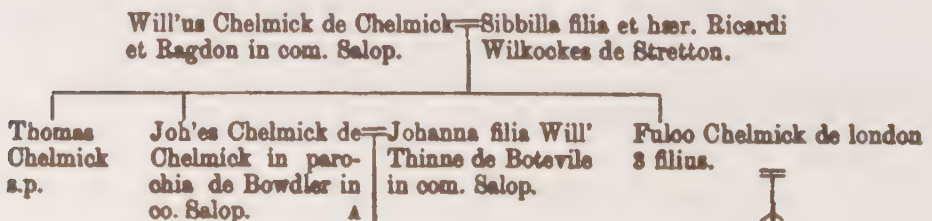 Will'us Chelmick de Chelmick
et Ragdon in com. Salop.
Sibbilla filia et hær. Ricardi
Wilkockes de Stretton.
Thomas
Chelmick
s.p.
Joh'es Chelmick de
Chelmick in paro-
chia de Bowdler in
co. Salop.
A
Johanna filia Will'
Thinne de Botevile
in com. Salop.
Fulco Chelmick de london
3 filius.